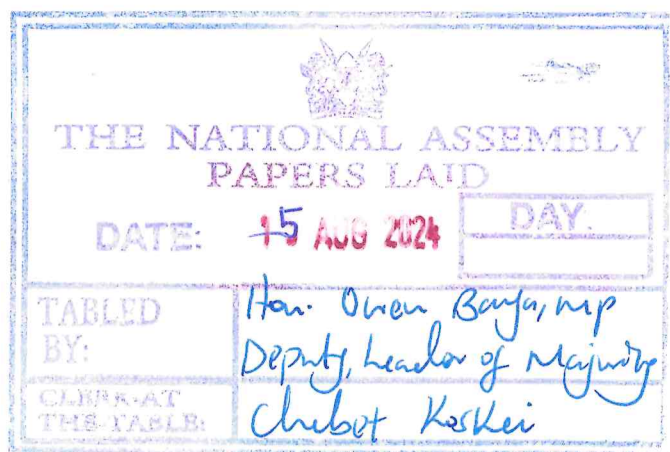 THE NATIONAL ASSEMBLY
PAPERS LAID
DATE: 15 AUG 2024 DAY.
TABLED BY: Hon. Owen Baya, mp
Deputy, Leader of Majority
CLERK-AT THE-TABLE: Chebet Koskei